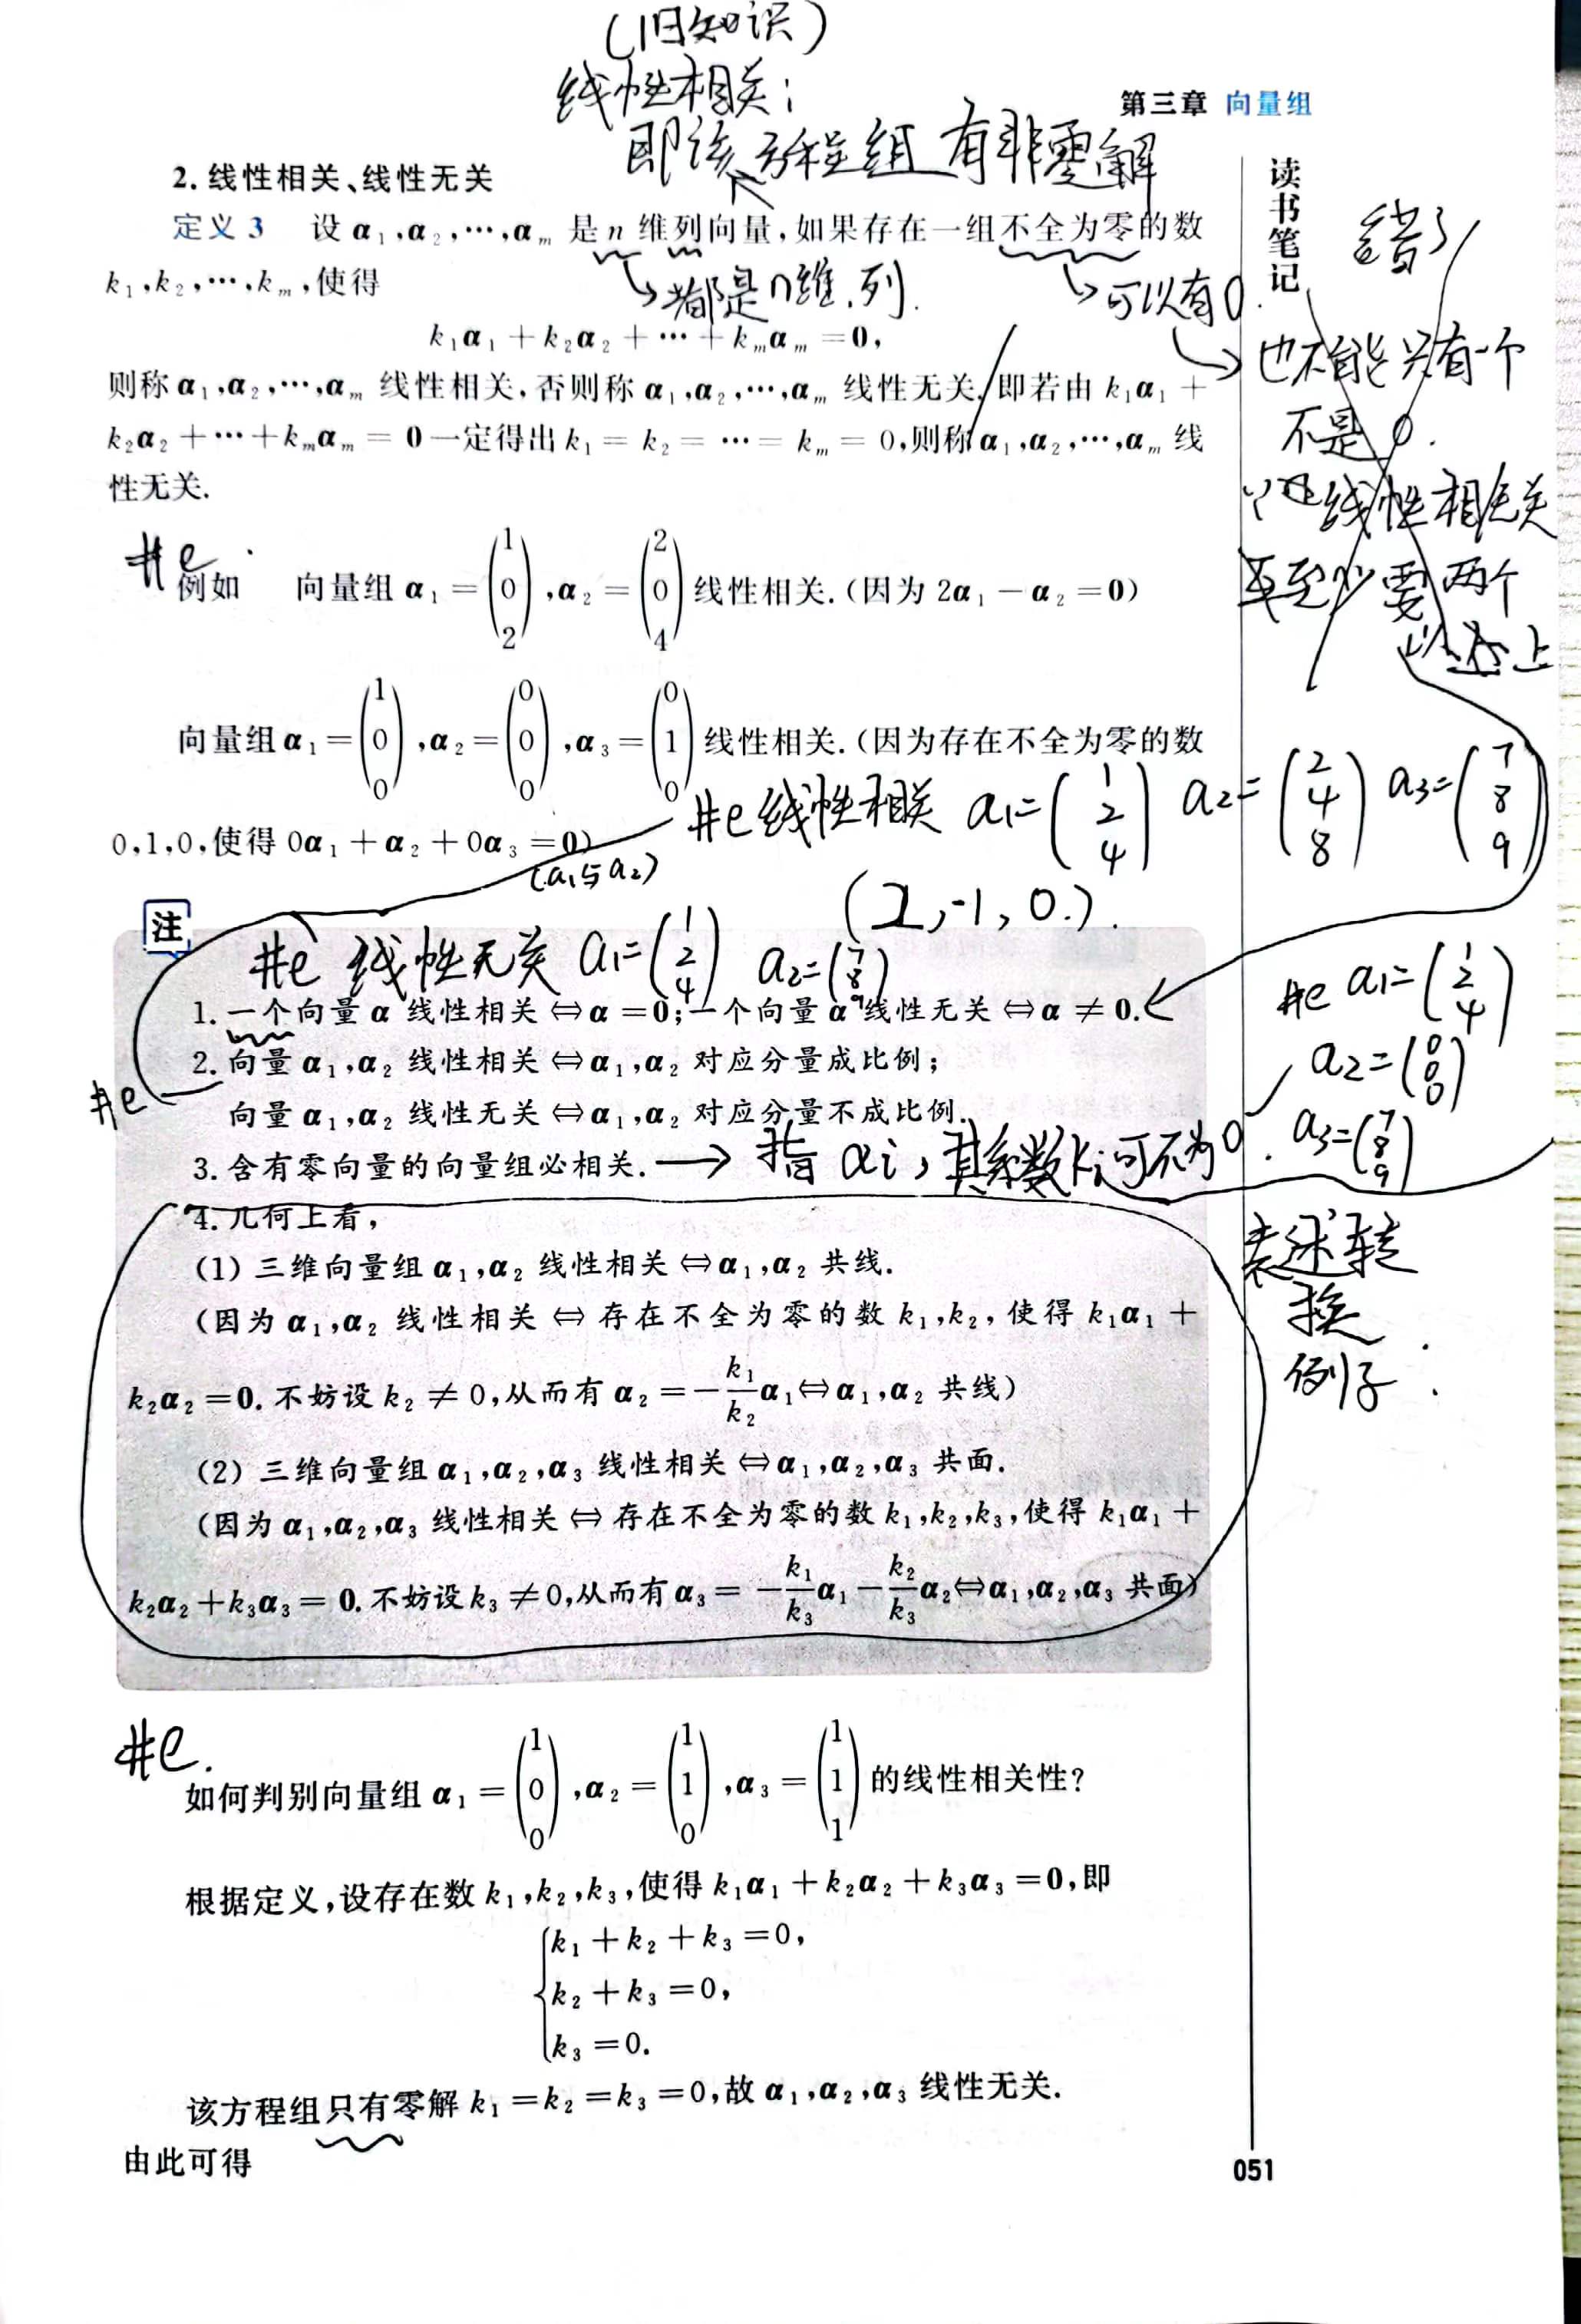 (旧知识)
线性相关:
即该方程组有非零解
第三章 向量组
读书笔记
2. 线性相关、线性无关
定义 3 设 α₁,α₂,…,αₘ 是 n 维列向量,如果存在一组不全为零的数
k₁,k₂,…,kₘ,使得
都是n维.列.
可以有0.
k₁α₁+k₂α₂+…+kₘαₘ=0,
则称 α₁,α₂,…,αₘ 线性相关,否则称 α₁,α₂,…,αₘ 线性无关,即若由 k₁α₁+
k₂α₂+…+kₘαₘ=0 一定得出 k₁=k₂=…=kₘ=0,则称 α₁,α₂,…,αₘ 线
性无关.
错了
也不能只有一个
不是0.
线性相关
至少要两个
以上
#e
例如 向量组 α₁=(1 0 2),α₂=(2 0 4)线性相关.(因为 2α₁-α₂=0)
向量组 α₁=(1 0 0),α₂=(0 0 0),α₃=(0 1 0)线性相关.(因为存在不全为零的数
0,1,0,使得 0α₁+α₂+0α₃=0)
#e 线性相关 a₁=(1 2 4) a₂=(2 4 8) a₃=(7 8 9)
(a₁与a₂)
(2,-1,0.).
注
#e 线性无关 a₁=(1 2 4) a₂=(7 8 9)
1. 一个向量 α 线性相关⇔α=0;一个向量 α 线性无关⇔α≠0.
2. 向量 α₁,α₂ 线性相关⇔α₁,α₂ 对应分量成比例;
#e
向量 α₁,α₂ 线性无关⇔α₁,α₂ 对应分量不成比例.
3. 含有零向量的向量组必相关. → 指 αi,其系数ki可不为0.
#e a₁=(1 2 4)
a₂=(0 0 0)
a₃=(7 8 9)
4. 几何上看,
(1) 三维向量组 α₁,α₂ 线性相关⇔α₁,α₂ 共线.
(因为 α₁,α₂ 线性相关⇔存在不全为零的数 k₁,k₂,使得 k₁α₁+
k₂α₂=0. 不妨设 k₂≠0,从而有 α₂=-k₁/k₂α₁⇔α₁,α₂ 共线)
(2) 三维向量组 α₁,α₂,α₃ 线性相关⇔α₁,α₂,α₃ 共面.
(因为 α₁,α₂,α₃ 线性相关⇔存在不全为零的数 k₁,k₂,k₃,使得 k₁α₁+
k₂α₂+k₃α₃=0. 不妨设 k₃≠0,从而有 α₃=-k₁/k₃α₁-k₂/k₃α₂⇔α₁,α₂,α₃ 共面)
表述转
换
例子.
#e.
如何判别向量组 α₁=(1 0 0),α₂=(1 1 0),α₃=(1 1 1)的线性相关性?
根据定义,设存在数 k₁,k₂,k₃,使得 k₁α₁+k₂α₂+k₃α₃=0,即
k₁+k₂+k₃=0,
k₂+k₃=0,
k₃=0.
该方程组只有零解 k₁=k₂=k₃=0,故 α₁,α₂,α₃ 线性无关.
由此可得
051